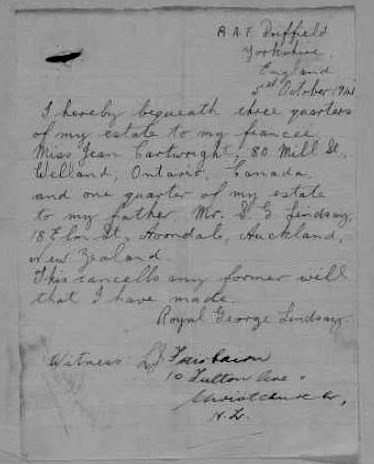 R.A.F. Driffield
Yorkshire,
England
October 1941
I hereby bequeath three quarters
of my estate to my fiancee
Miss Jean Cartwright, 80 Mill St.,
Welland, Ontario, Canada
and one quarter of my estate
to my father, Mr. S. G. Lindsay,
18 Elm St., Avondale, Auckland,
New Zealand
This cancells any former will
that I have made.
Royal George Lindsay.
Witness: Fairbairn
10 Fulton Ave.
Christchurch,
N.Z.